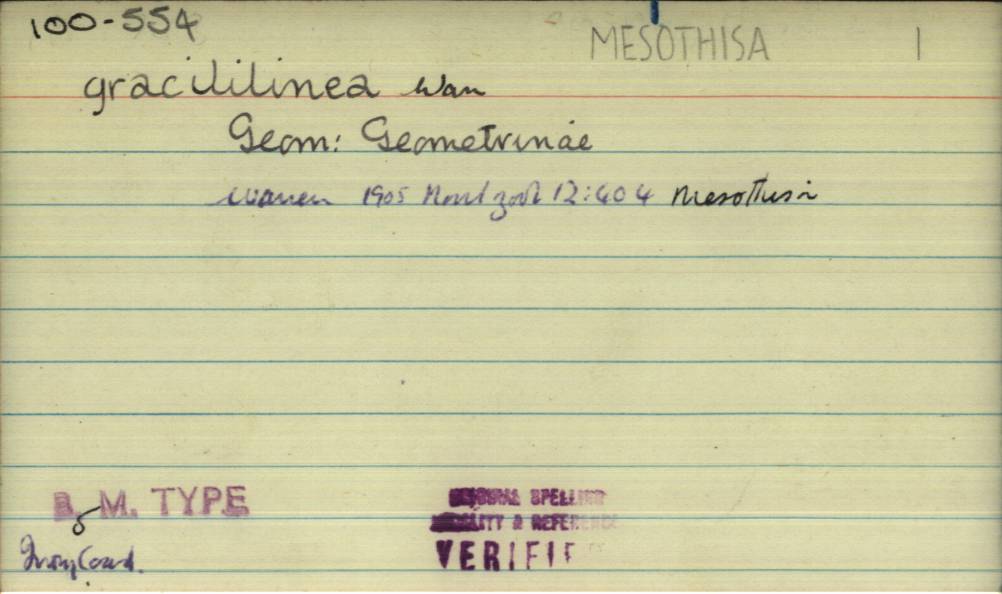 100-554
MESOTHISA 1
gracililinea Warr
Geom: Geometrinae
Warren 1905 Novit zool 12:404 Mesothisa
B. M. TYPE
Ivory Coast.
ORIGINAL SPELLING
LOCALITY & REFERENCE
VERIFIE